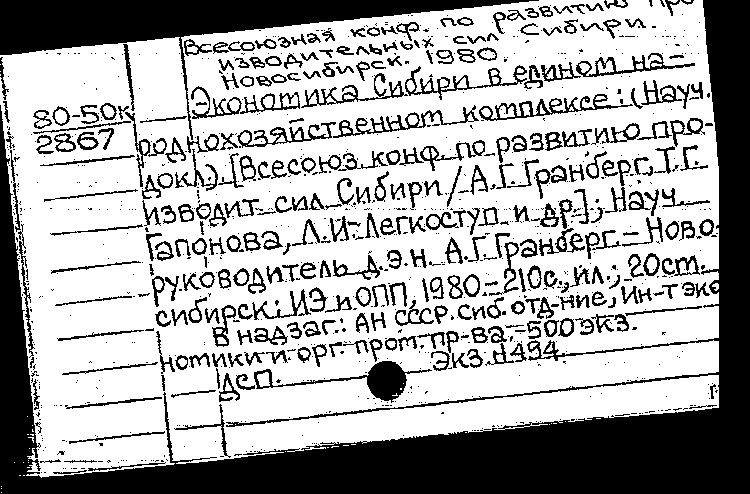 Всесоюзная конф. по развитию про-
изводительных сил Сибири.
Новосибирск. 1980.
80-50к
2867
Экономика Сибири в едином на-
роднохозяйственном комплексе: (Науч.
докл.) [Всесоюз. конф. по развитию про-
изводит. сил Сибири / А.Г. Гранберг, Т.Г.
Гапонова, Л.И. Легкоступ и др.]; Науч.
руководитель д.э.н. А.Г. Гранберг. – Ново-
сибирск: ИЭ и ОПП, 1980. – 210с., ил.; 20см.
В надзаг.: АН СССР. Сиб. отд-ние, Ин-т эко
номики и орг. пром. пр-ва. – 500 экз.
Экз. N 494.
ДСП.